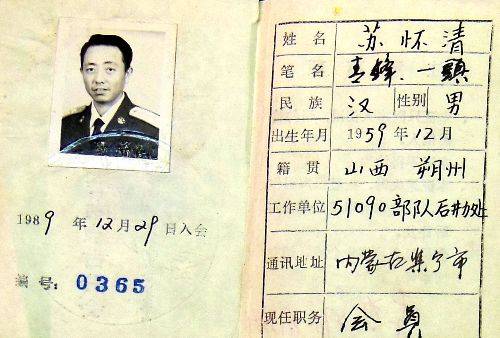 1989 年 12 月 29 日入会
编号: 0365
姓名 苏怀清
笔名 青锋、一頭
民族 汉 性别 男
出生年月 1959年12月
籍贯 山西 朔州
工作单位 51090部队后勤处
通讯地址 内蒙古集宁市
现任职务 会员